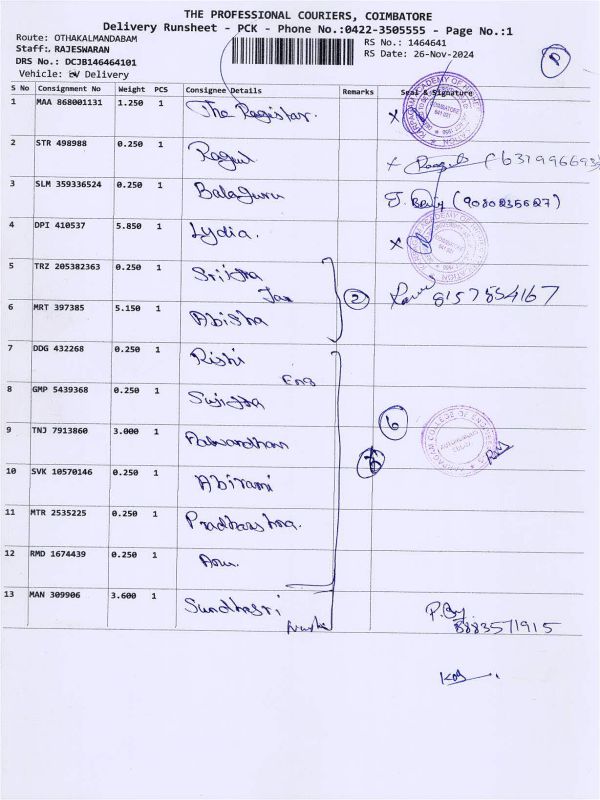 THE PROFESSIONAL COURIERS, COIMBATORE
Delivery Runsheet - PCK - Phone No.:0422-3505555 - Page No.:1
Route: OTHAKALMANDABAM
Staff:. RAJESWARAN
DRS No.: DCJB146464101
Vehicle: Delivery
RS No.: 1464641
RS Date: 26-Nov-2024
P
S No Consignment No Weight PCS Consignee Details Remarks Seal & Signature
1 MAA 868001131 1.250 1 The Registar. X
2 STR 498988 0.250 1 Ragul X
3 SLM 359336524 0.250 1 Balaguru (9080235627)
4 DPI 410537 5.850 1 Lydia. X
5 TRZ 205382363 0.250 1 2 8157854167
6 MRT 397385 5.150 1 Abisha
7 DDG 432268 0.250 1 Rishi
Eng
8 GMP 5439368 0.250 1 6
9 TNJ 7913860 3.000 1
10 SVK 10570146 0.250 1 Abirami
11 MTR 2535225 0.250 1
12 RMD 1674439 0.250 1
13 MAN 309906 3.600 1 8883571915